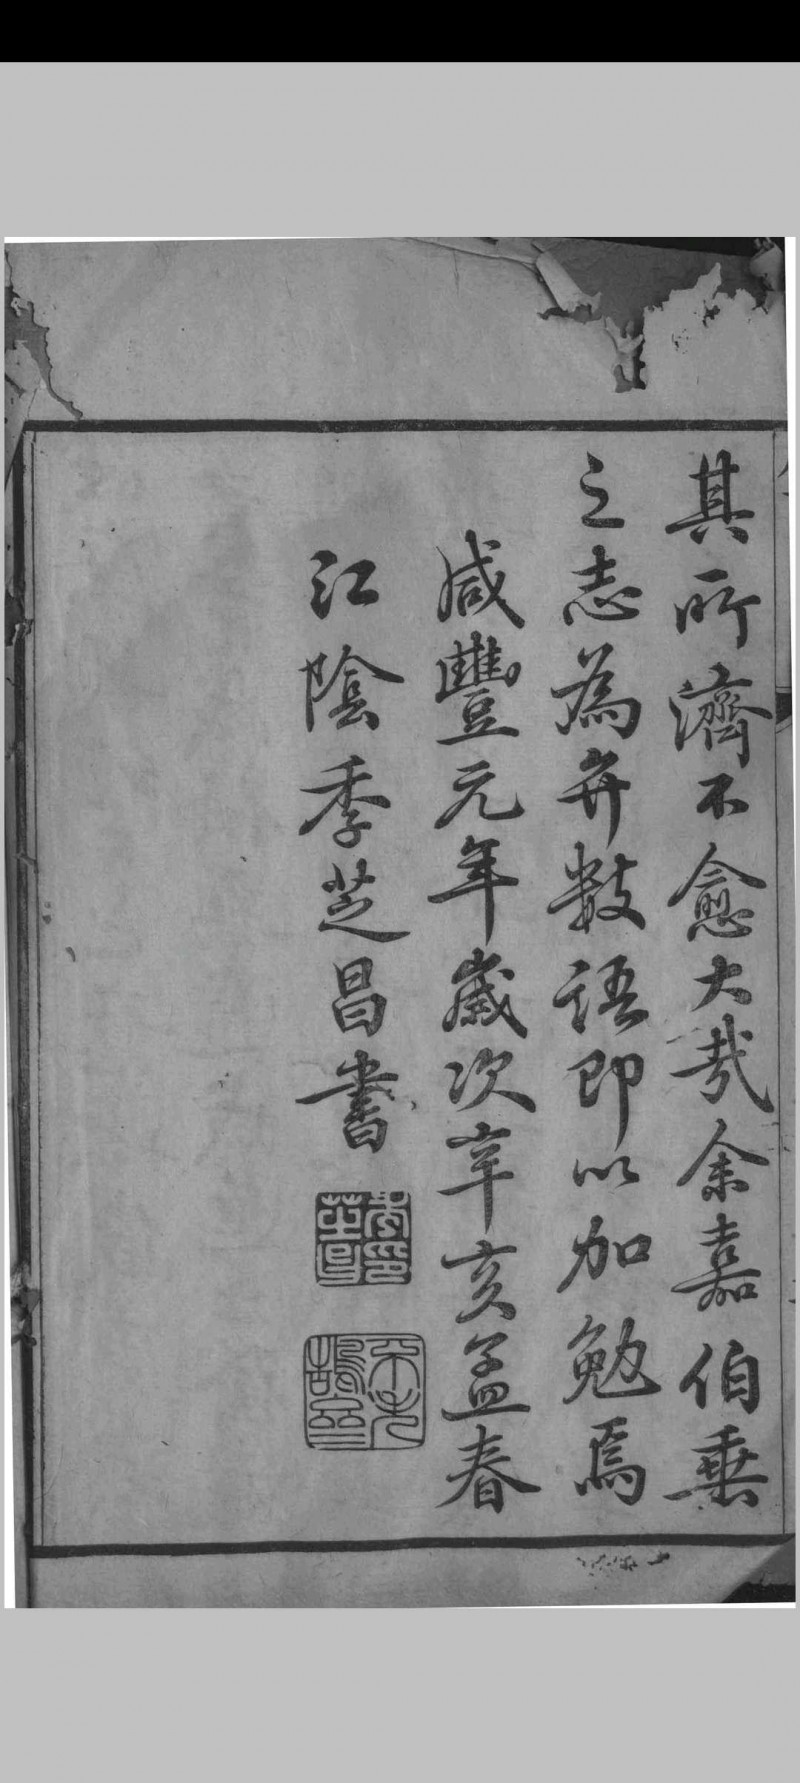 其所濟不愈大哉余嘉伯乗
之志為弁數語即以加勉焉
咸豐元年歲次辛亥孟春
江陰季芝昌書